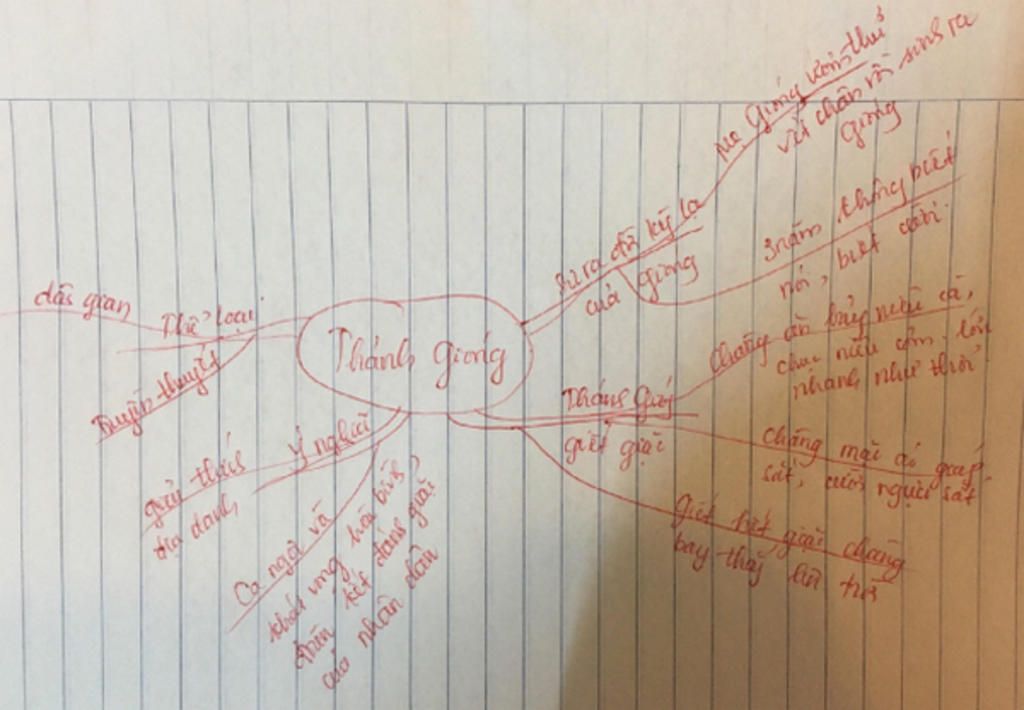 Thánh Gióng
Thể loại
dân gian
Truyền thuyết
Ý nghĩa
giải thích
địa danh
Ca ngợi và
khát vọng hòa bình,
đoàn kết đánh giặc
của nhân dân
Sự ra đời kỳ lạ
của Gióng
Mẹ Gióng ướm thử
vết chân rồi sinh ra
Gióng
3 năm không biết
nói, biết cười.
Thánh Gióng
giết giặc
chàng ăn bảy nong cà,
chục nong cơm. lớn
nhanh như thổi
chàng mặc áo giáp
sắt, cưỡi ngựa sắt
giết hết giặc chàng
bay thẳng lên trời